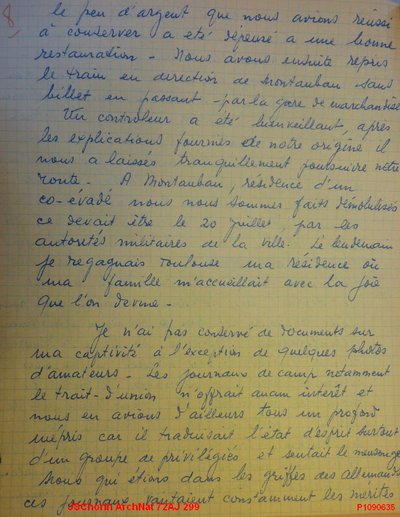 8
le peu d'argent que nous avions réussi
à conserver a été dépensé a une bonne
restauration - Nous avons ensuite repris
le train en direction de Montauban sans
billet en passant par la gare de marchandise
Un contrôleur a été bienveillant, après
les explications fournies de notre origine il
nous a laissés tranquillement poursuivre notre
route - A Montauban, résidence d'un
co-évadé nous nous sommes faits démobilisés
ce devait être le 20 Juillet, par les
autorités militaires de la ville. Le lendemain
je regagnais Toulouse ma résidence où
ma famille m'accueillait avec la joie
que l'on devine -
Je n'ai pas conservé de documents sur
ma captivité à l'exception de quelques photos
d'amateurs - Les journaux de camp notamment
le trait-d'union n'offrait aucun intérêt et
nous en avions d'ailleurs tous un profond
mépris car il traduisait l'état d'esprit surtout
d'un groupe de privilégiés et sentait le mensonge
Nous qui étions dans les griffes des allemands
ces journaux vantaient constamment les mérites
Schorin ArchNat 72AJ 299
P1090635